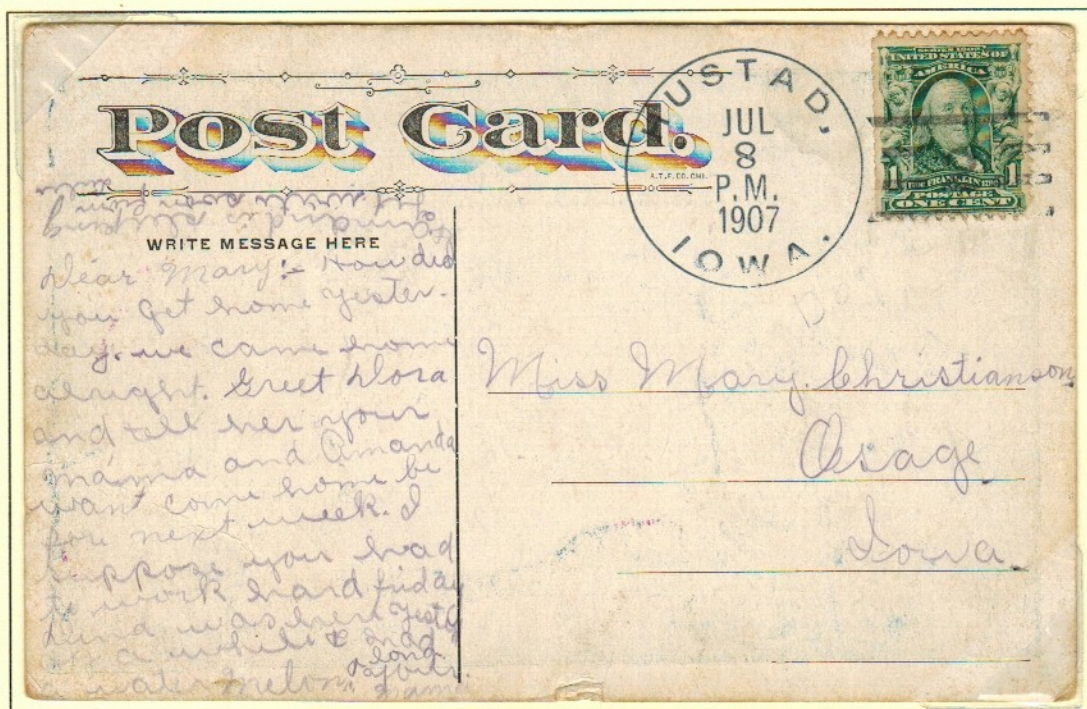 Post Card.
A.T.F. CO. CHI.
USTAD,
JUL
8
P.M.
1907
IOWA.
SERIES 1902
UNITED STATES OF
AMERICA
1 1706 FRANKLIN 1790 1
POSTAGE
ONE CENT
WRITE MESSAGE HERE
Dear Mary:- How did
you get home yester-
day. we came home
alright. Greet Dora
and tell her your
mama and Amanda
want come home be
fore next week. I
suppose you had
to work hard friday
was here
a while & had
along
a water melon.
Miss Mary Christianson
Osage
Iowa.